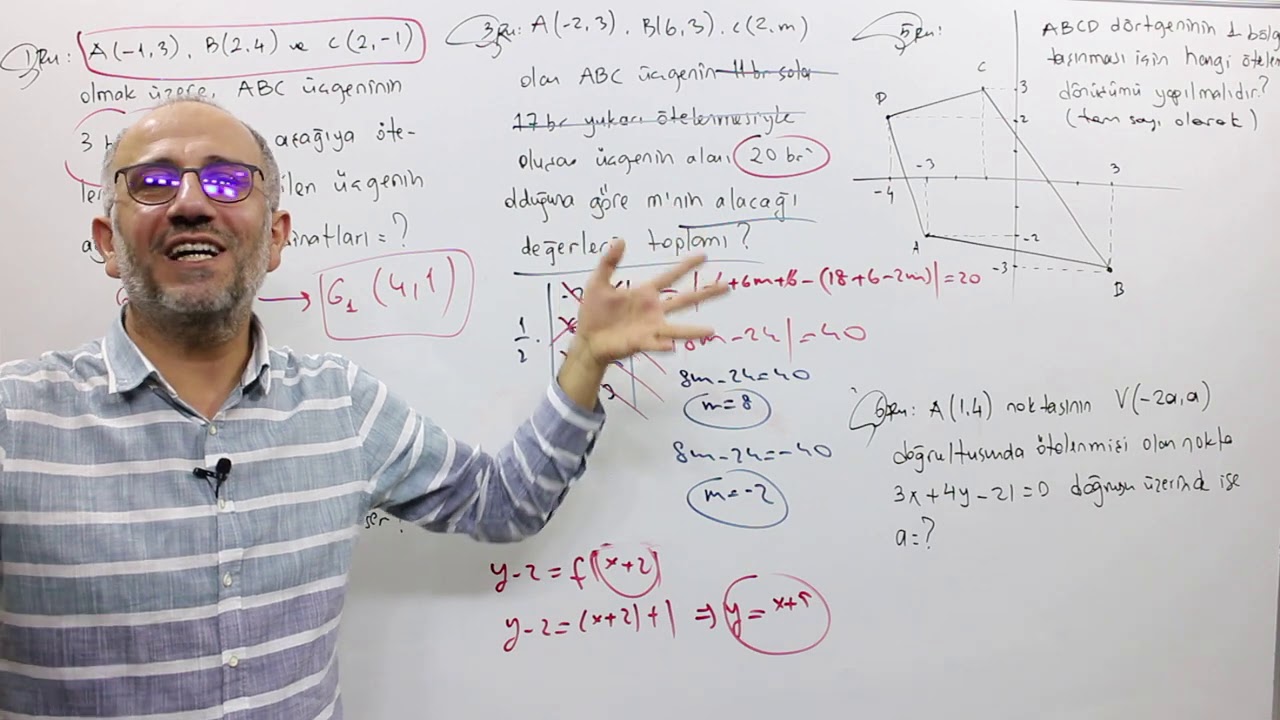 1. Soru: A(-1,3), B(2,4) ve C(2,-1)
olmak üzere, ABC üçgeninin
3 aşağıya öte-
len ilen üçgenin
ağ inatları = ?
G → G₁ (4,1)
3. Soru: A(-2,3), B(6,3), C(2,m)
olan ABC üçgenin 11 br sola
17 br yukarı ötelenmesiyle
oluşan üçgenin alanı 20 br²
olduğuna göre m'nin alacağı
değerleri toplamı?
1/2 ·
+6m+6-(18+6-2m)|=20
8m-24|=40
8m-24=40
m=8
8m-24=-40
m=-2
y-2=f(x+2)
y-2=(x+2)+1 ⇒ y=x+5
5. Soru:
ABCD dörtgeninin 1. bölg
taşınması için hangi ötelem
dönüşümü yapılmalıdır?
(tam sayı olarak)
C
3
D
2
-3
3
-4
A
-2
-3
B
6. Soru: A(1,4) noktasının V(-2a,a)
doğrultusunda ötelenmişi olan nokta
3x+4y-21=0 doğrusu üzerinde ise
a=?